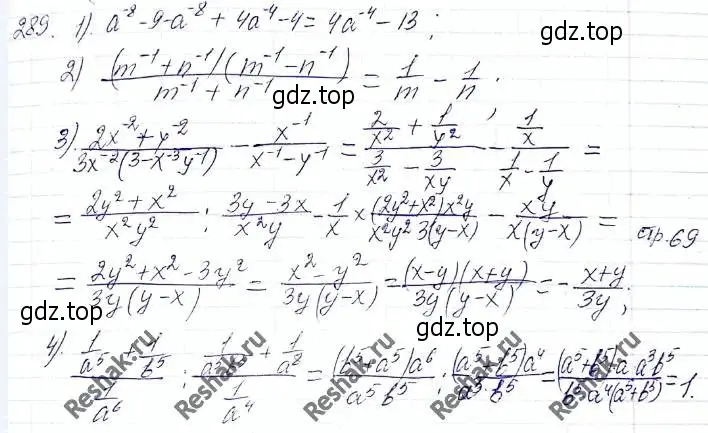 289. 1). a⁻⁸ - 9 - a⁻⁸ + 4a⁻⁴ - 4 = 4a⁻⁴ - 13;
2) (m⁻¹ + n⁻¹)(m⁻¹ - n⁻¹) / (m⁻¹ + n⁻¹) = 1/m - 1/n;
gdz.top gdz.top
3). (2x⁻² + y⁻²) / (3x⁻²(3 - x⁻³y⁻¹) - x⁻¹ / (x⁻¹ - y⁻¹) = (2/x² + 1/y²) / (3/x² - 3/xy) - (1/x) / (1/x - 1/y) =
= (2y² + x²) / x²y² : (3y - 3x) / x²y - 1/x × (2y² + x²)x²y / x²y² 3(y - x) - xy / x(y - x) = стр. 69
= (2y² + x² - 3y²) / 3y(y - x) = (x² - y²) / 3y(y - x) = (x - y)(x + y) / 3y(y - x) = - (x + y) / 3y;
gdz.top gdz.top
4). (1/a⁵ + 1/b⁵) / (1/a⁶) : + 1/a⁸ / (1/a⁴) = (b⁵ + a⁵)a⁶ / a⁵b⁵ : (a⁵ + b⁵)a⁴ / a³ · b⁵ = = 1.
Reshak.ru Reshak.ru Reshak.ru Reshak.ru